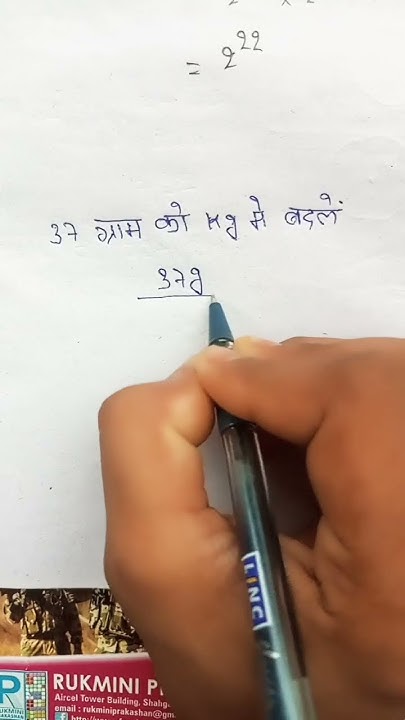 = 2^22
37 ग्राम को Kg मे बदलें
37g
LINC
RUKMINI
Aircel Tower Building,
email : rukminiprakashan@gm
RUKMINI